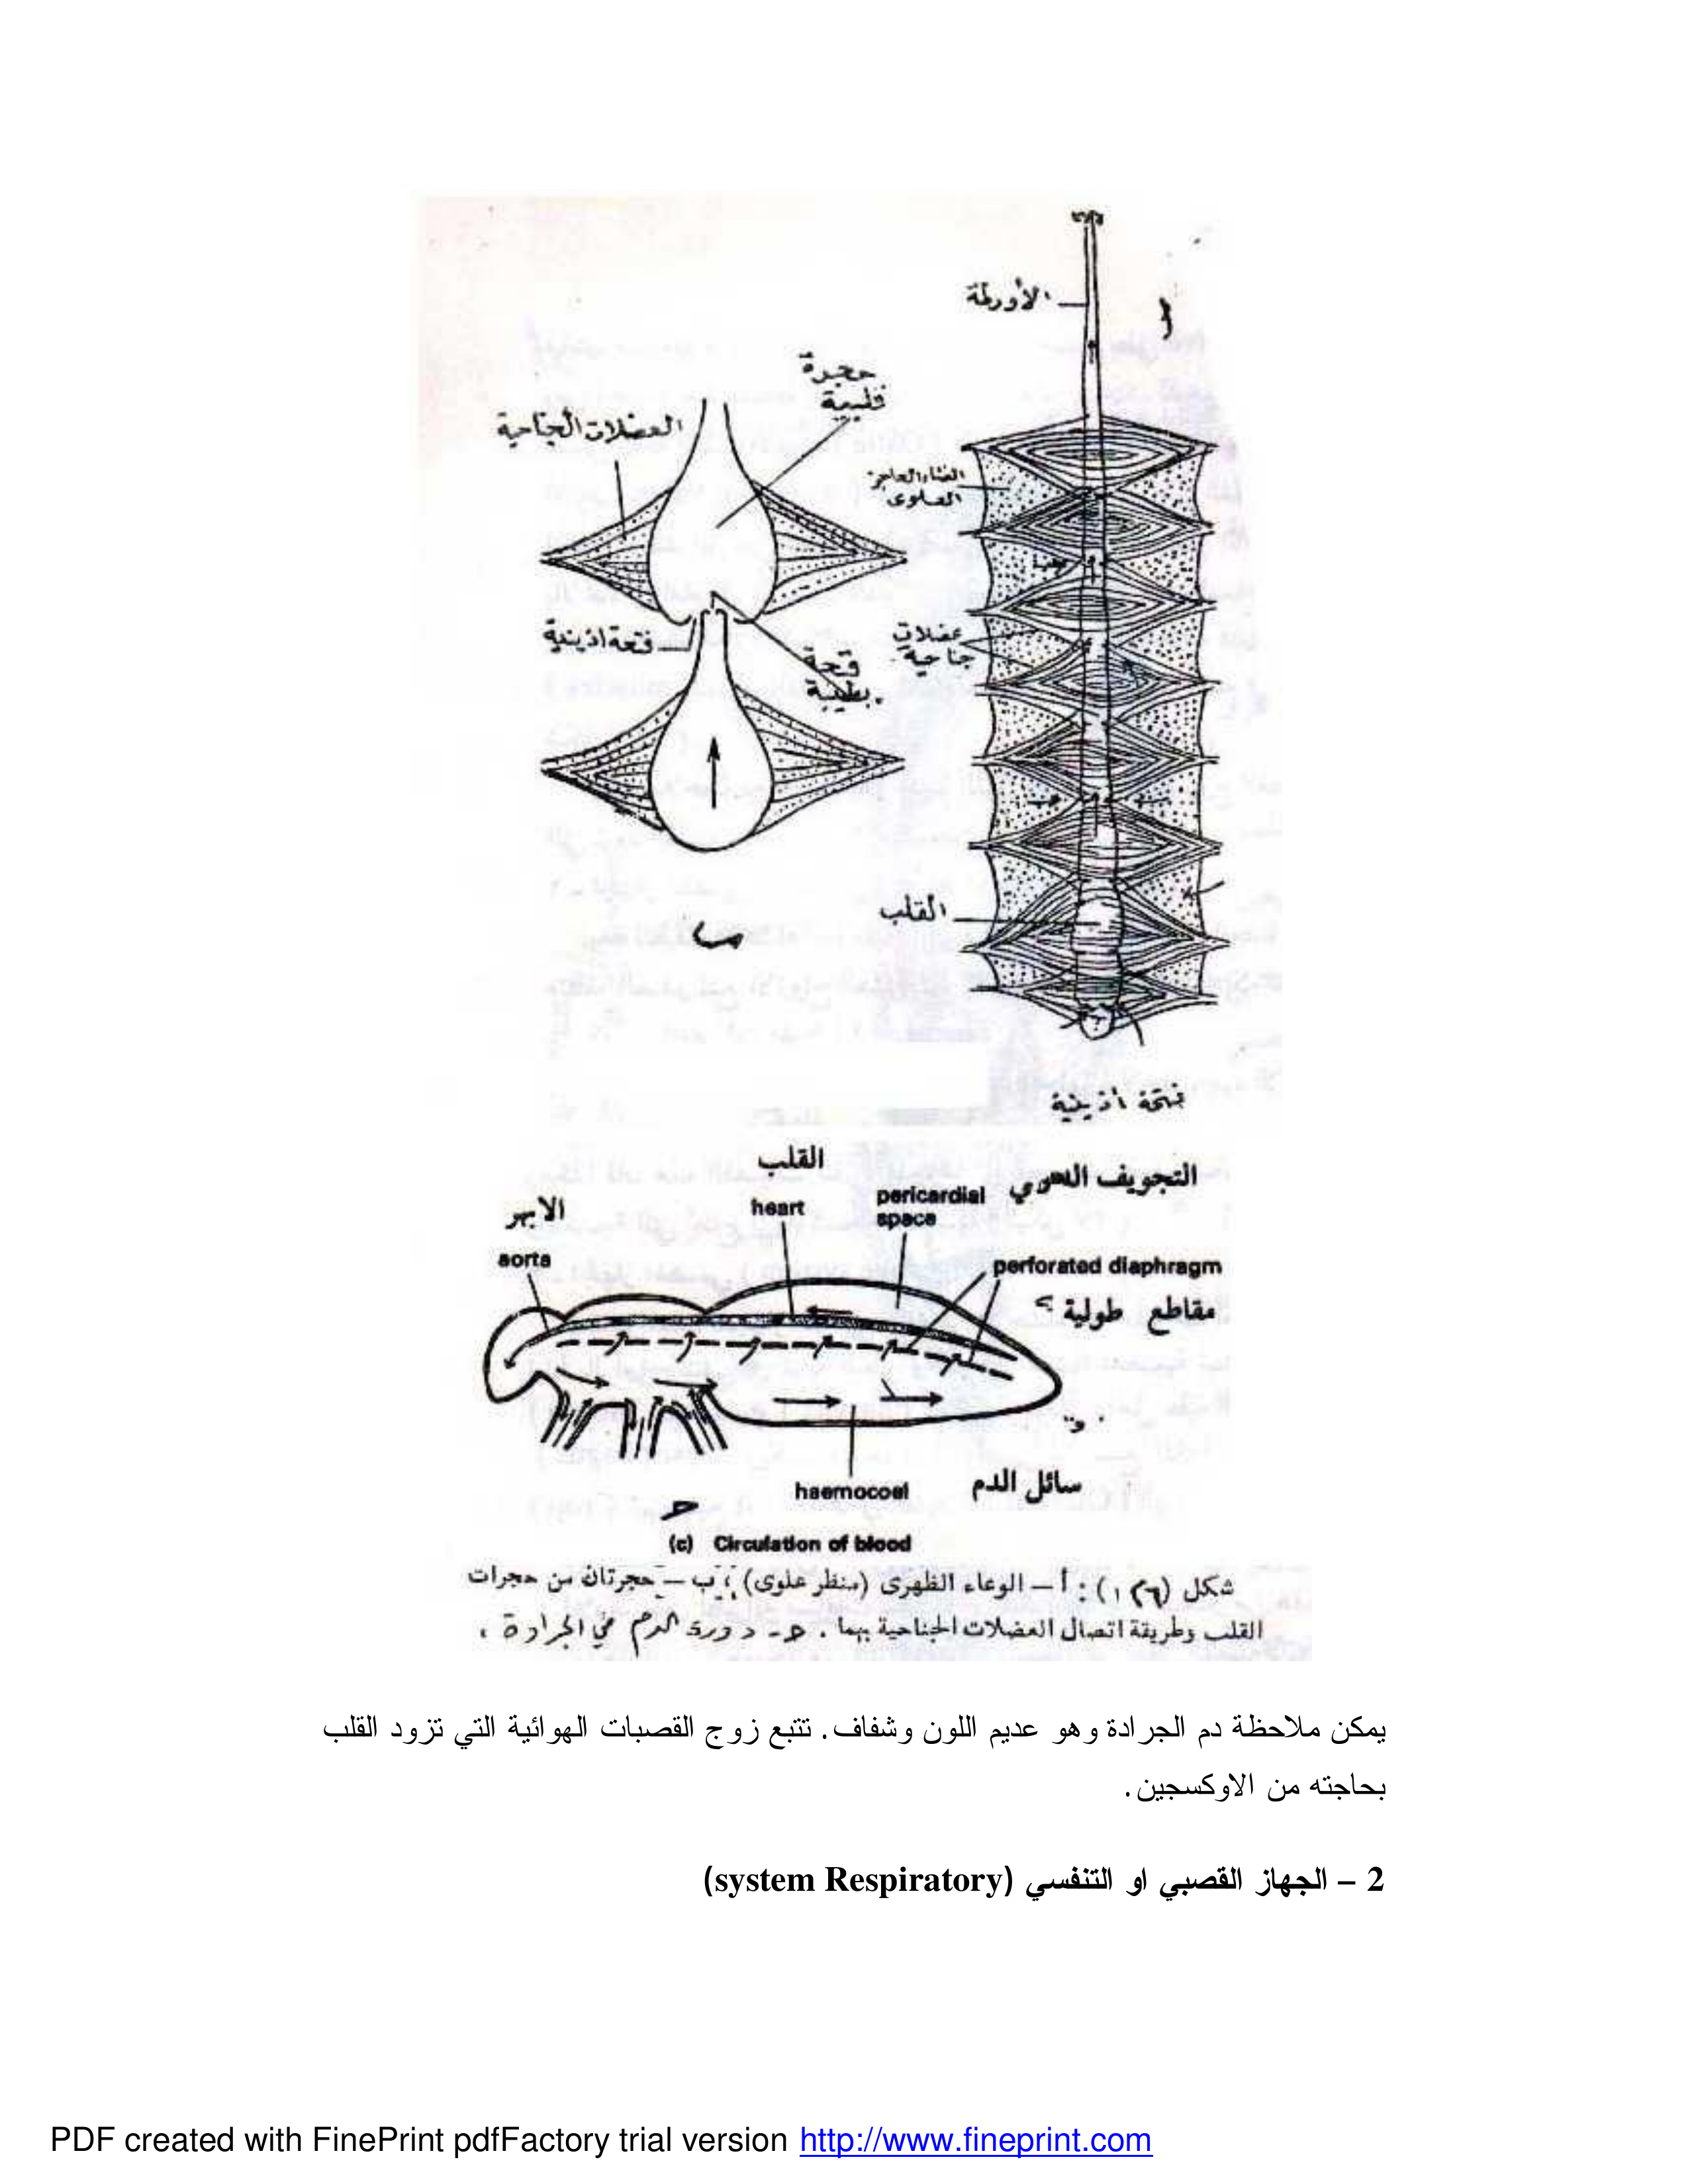 الأورطة
حجرة
قلبية
العضلات الجناحية
الغشاء الحاجز
العلوى
فتحة اذينية
عضلات
جناحية
فتحة
بطينية
القلب
فتحة اذينية
القلب
heart
pericardial
space
التجويف
الابهر
aorta
perforated diaphragm
مقاطع طولية
haemocoel
سائل الدم
(c) Circulation of blood
شكل : أ – الوعاء الظهرى (منظر علوى) ، ب – حجرتان من حجرات
القلب وطريقة اتصال العضلات الجناحية بهما . حـ - دورة الدم في الجرادة .
يمكن ملاحظة دم الجرادة وهو عديم اللون وشفاف. تتبع زوج القصبات الهوائية التي تزود القلب
بحاجته من الاوكسجين.
2 – الجهاز القصبي او التنفسي (system Respiratory)
PDF created with FinePrint pdfFactory trial version http://www.fineprint.com